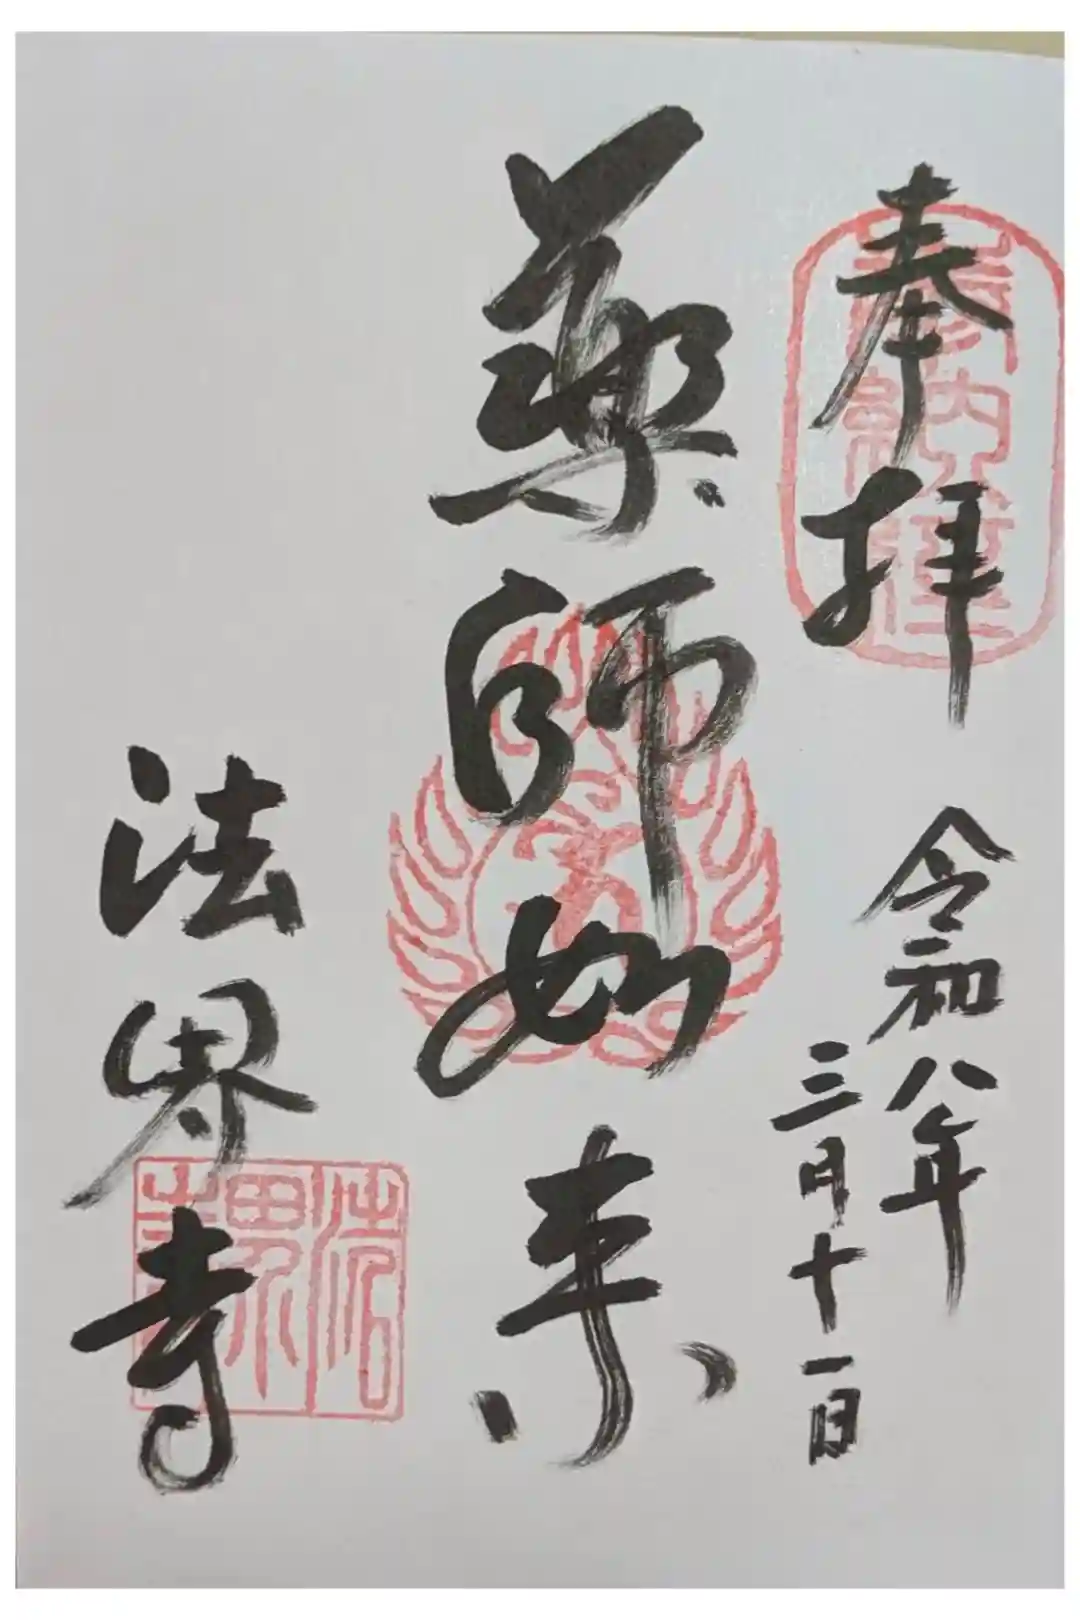 奉拝
令和八年
三月十一日
薬師如来
法界寺
奉納経
法界寺